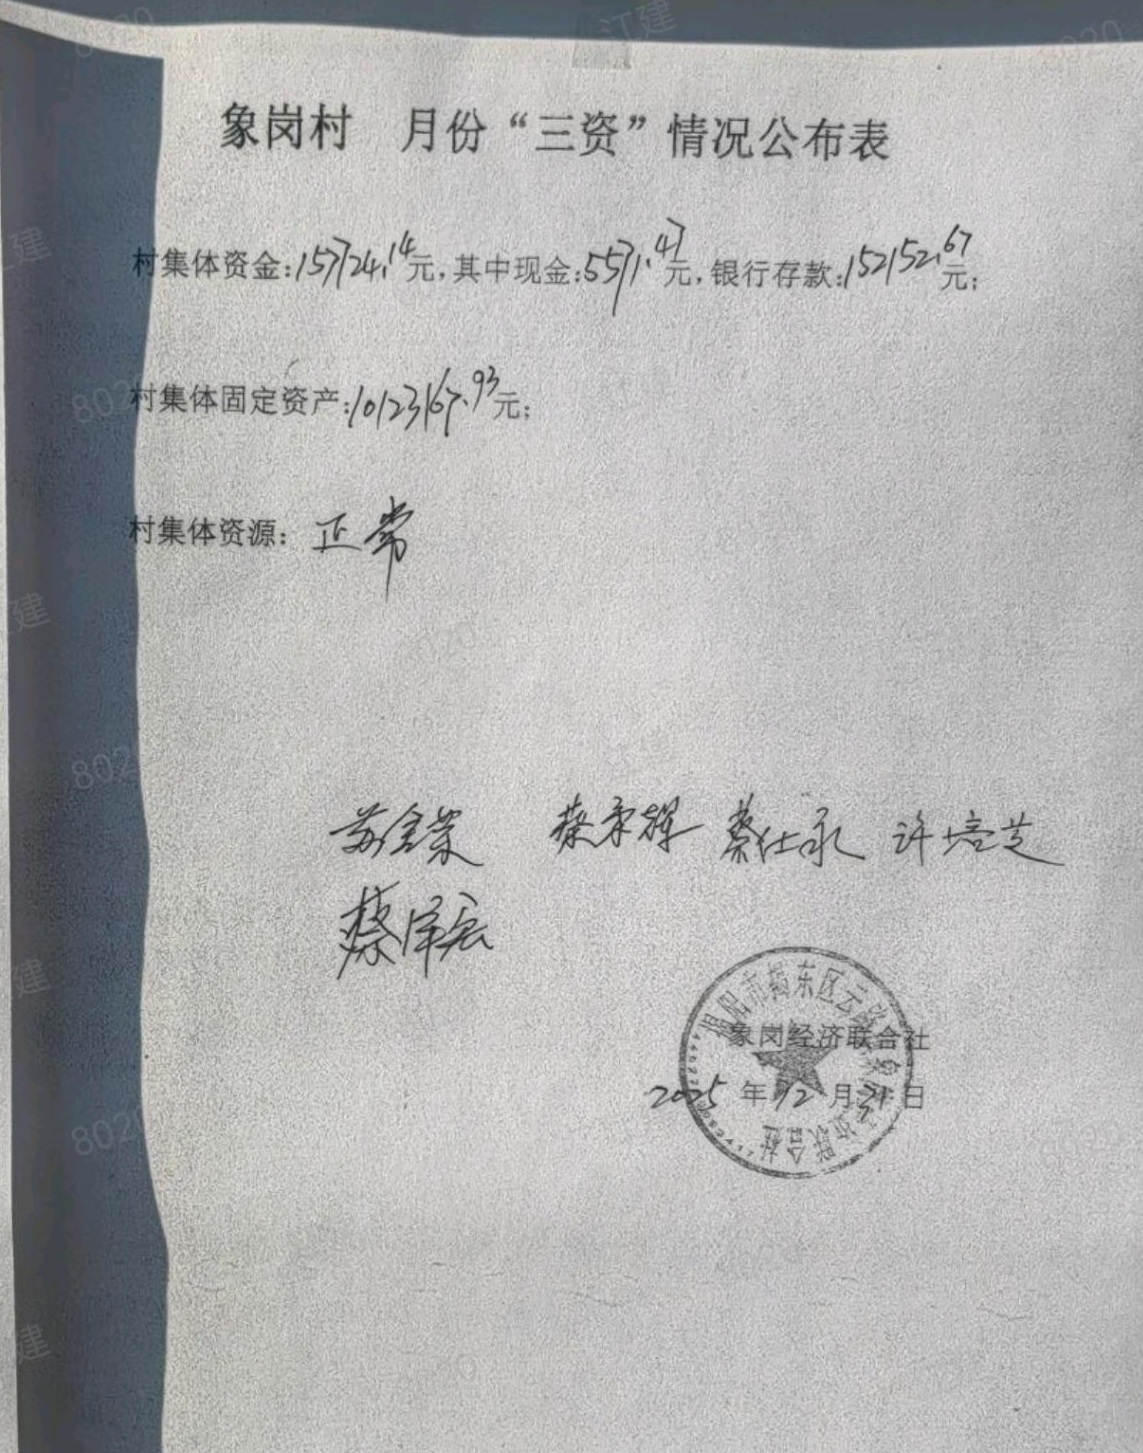 象岗村 月份“三资”情况公布表
村集体资金:157724.14元,其中现金:5571.47元,银行存款:152152.67元;
村集体固定资产:10123167.93元;
村集体资源: 正常
蔡仕承 许培芝
蔡泽宏
揭阳市揭东区云路
象岗经济联合社
2025年12月31日